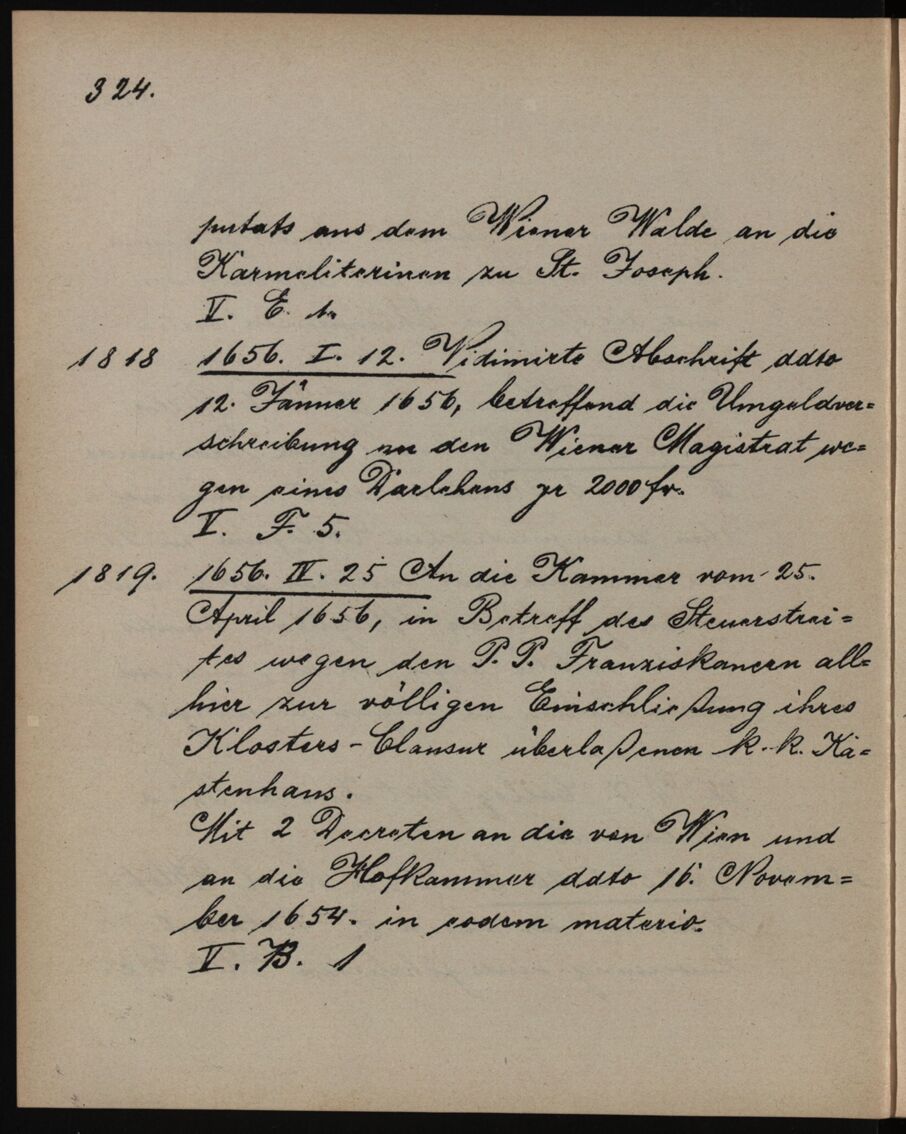 324.
putats aus dem Wiener Walde an die
Karmeliterinen zu St. Joseph.
V. E. 1.
1818 1656. I. 12. Vidimirte Abschrift ddto
12. Jänner 1656, betreffend die Umgeldver=
schreibung an den Wiener Magistrat we=
gen eines Darlehens pr 2000 fr.
V. F. 5.
1819. 1656. IV. 25 An die Kammer vom 25.
April 1656, in Betreff des Steuerstrei=
tes wegen den P. P. Franziskanern all=
hier zur völligen Einschließung ihres
Klosters-Clausur überlaßenen k. k. Kä=
stenhaus.
Mit 2 Decreten an die von Wien und
an die Hofkammer ddto 16. Novem=
ber 1654. in eodem materio.
V. B. 1